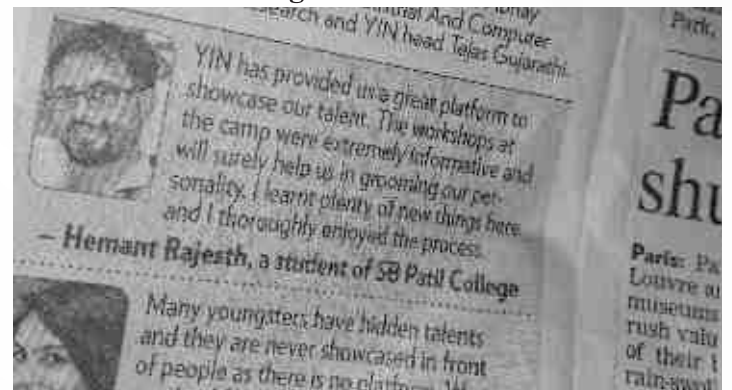 And Computer
search and YIN head Tejas Gujarathi.
YIN has provided us a great platform to
showcase our talent. The workshops at
the camp were extremely informative and
will surely help us in grooming our per-
sonality. I learnt plenty of new things here
and I thoroughly enjoyed the process.
– Hemant Rajesth, a student of SB Patil College
Many youngsters have hidden talents
and they are never showcased in front
of people as there is no platform.
Park,
Pa
shu
Paris: Pa
Louvre a
museums
rush valu
of their
rain-swol